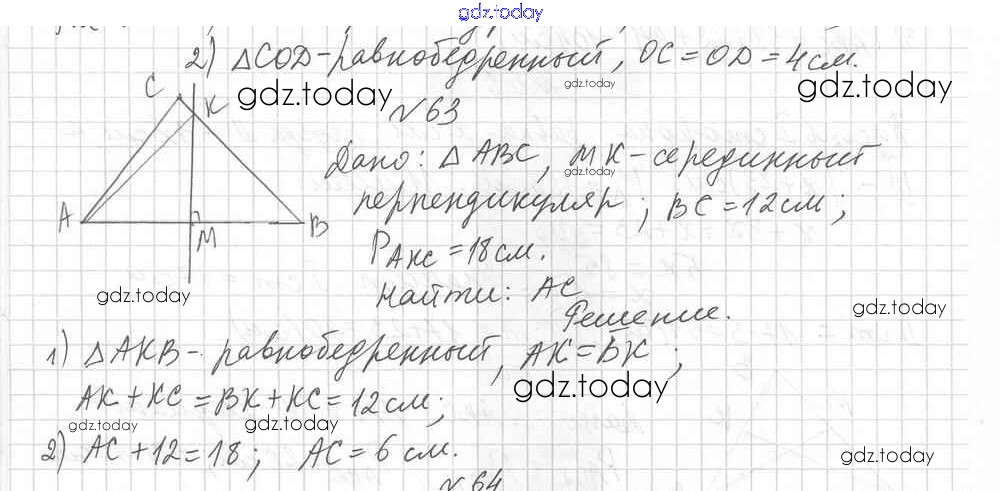 gdz.today
2) △COD - равнобедренный, OC = OD = 4 см.
gdz.today
gdz.today
gdz.today
C
K
A
M
B
№ 63
Дано: △ABC, MK - серединный
gdz.today
перпендикуляр; BC = 12 см;
P AKC = 18 см.
Найти: AC
gdz.today
gdz.today
Решение.
1) △AKB - равнобедренный, AK = BK;
gdz.today
AK + KC = BK + KC = 12 см;
gdz.today
gdz.today
2) AC + 12 = 18; AC = 6 см.
gdz.today
№ 64